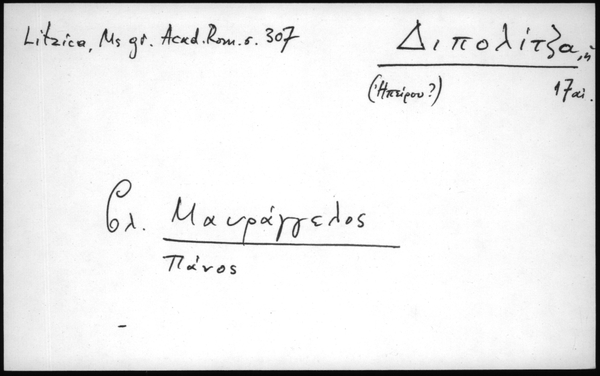 Litzica, Ms gr. Acad. Rom. σ. 307
Διπολίτζα, ἡ
(Ἠπείρου?) 17 αἰ.
βλ. Μαυράγγελος
Πάνος